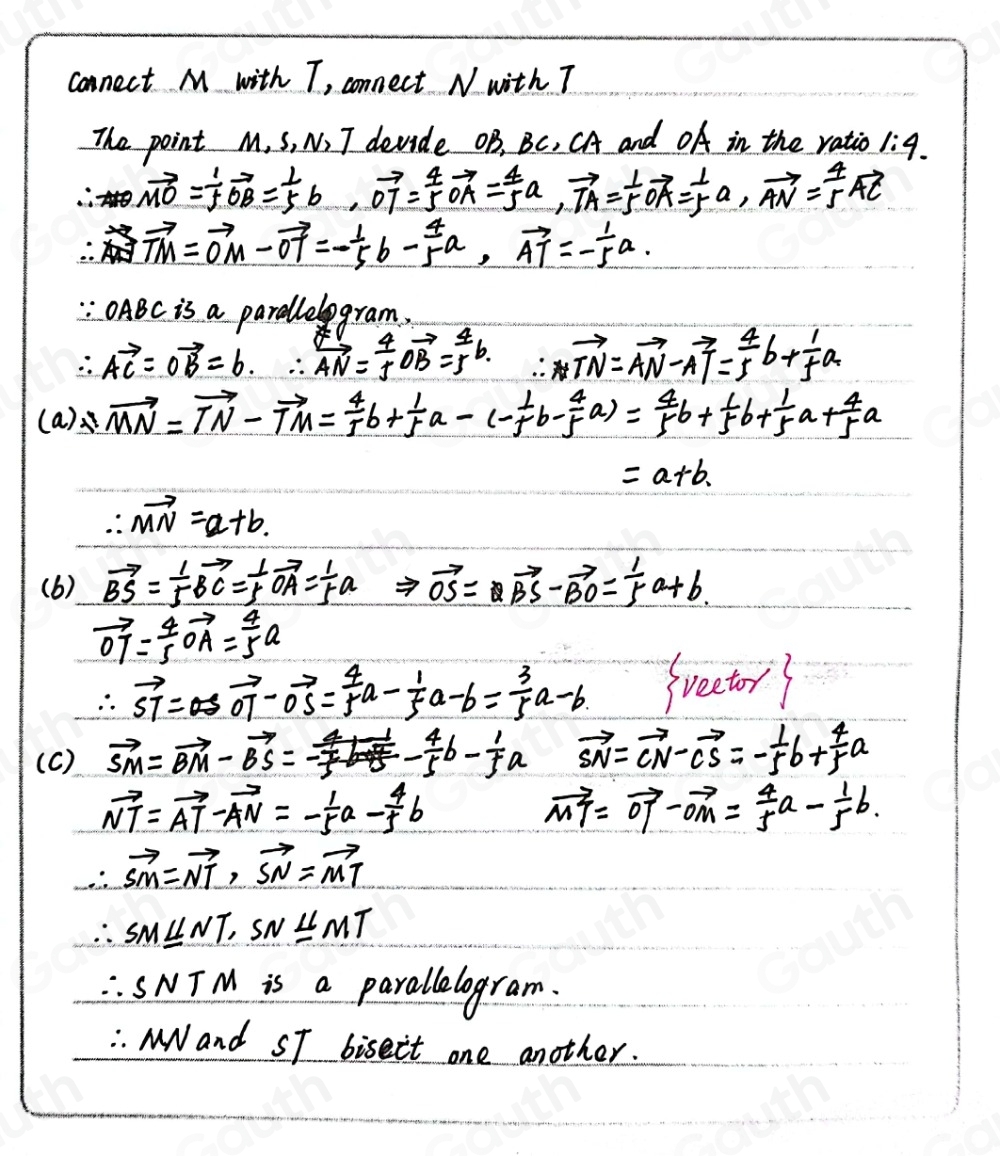 connect M with T, connect N with T
The point M, S, N, T devide OB, BC, CA and OA in the ratio 1:4.
∴ MO→ = 1/5 OB→ = 1/5 b , OT→ = 4/5 OA→ = 4/5 a , TA→ = 1/5 OA→ = 1/5 a , AN→ = 4/5 AC→
∴ TM→ = OM→ - OT→ = -1/5 b - 4/5 a , AT→ = -1/5 a .
∵ OABC is a parallelogram,
∴ AC→ = OB→ = b. ∴ AN→ = 4/5 OB→ = 4/5 b. ∴ TN→ = AN→ - AT→ = 4/5 b + 1/5 a
(a) ∴ MN→ = TN→ - TM→ = 4/5 b + 1/5 a - (-1/5 b - 4/5 a) = 4/5 b + 1/5 b + 1/5 a + 4/5 a
= a+b.
∴ MN→ = a+b.
(b) BS→ = 1/5 BC→ = 1/5 OA→ = 1/5 a ⇒ OS→ = BS→ - BO→ = 1/5 a + b.
OT→ = 4/5 OA→ = 4/5 a
∴ ST→ = OT→ - OS→ = 4/5 a - 1/5 a - b = 3/5 a - b. {vector}
(C) SM→ = BM→ - BS→ = -4/5 b - 1/5 a SN→ = CN→ - CS→ = -1/5 b + 4/5 a
NT→ = AT→ - AN→ = -1/5 a - 4/5 b MT→ = OT→ - OM→ = 4/5 a - 1/5 b.
∴ SM→ = NT→ , SN→ = MT→
∴ SM ⫫ NT, SN ⫫ MT
∴ SNTM is a parallelogram.
∴ MN and ST bisect one another.
Gauth